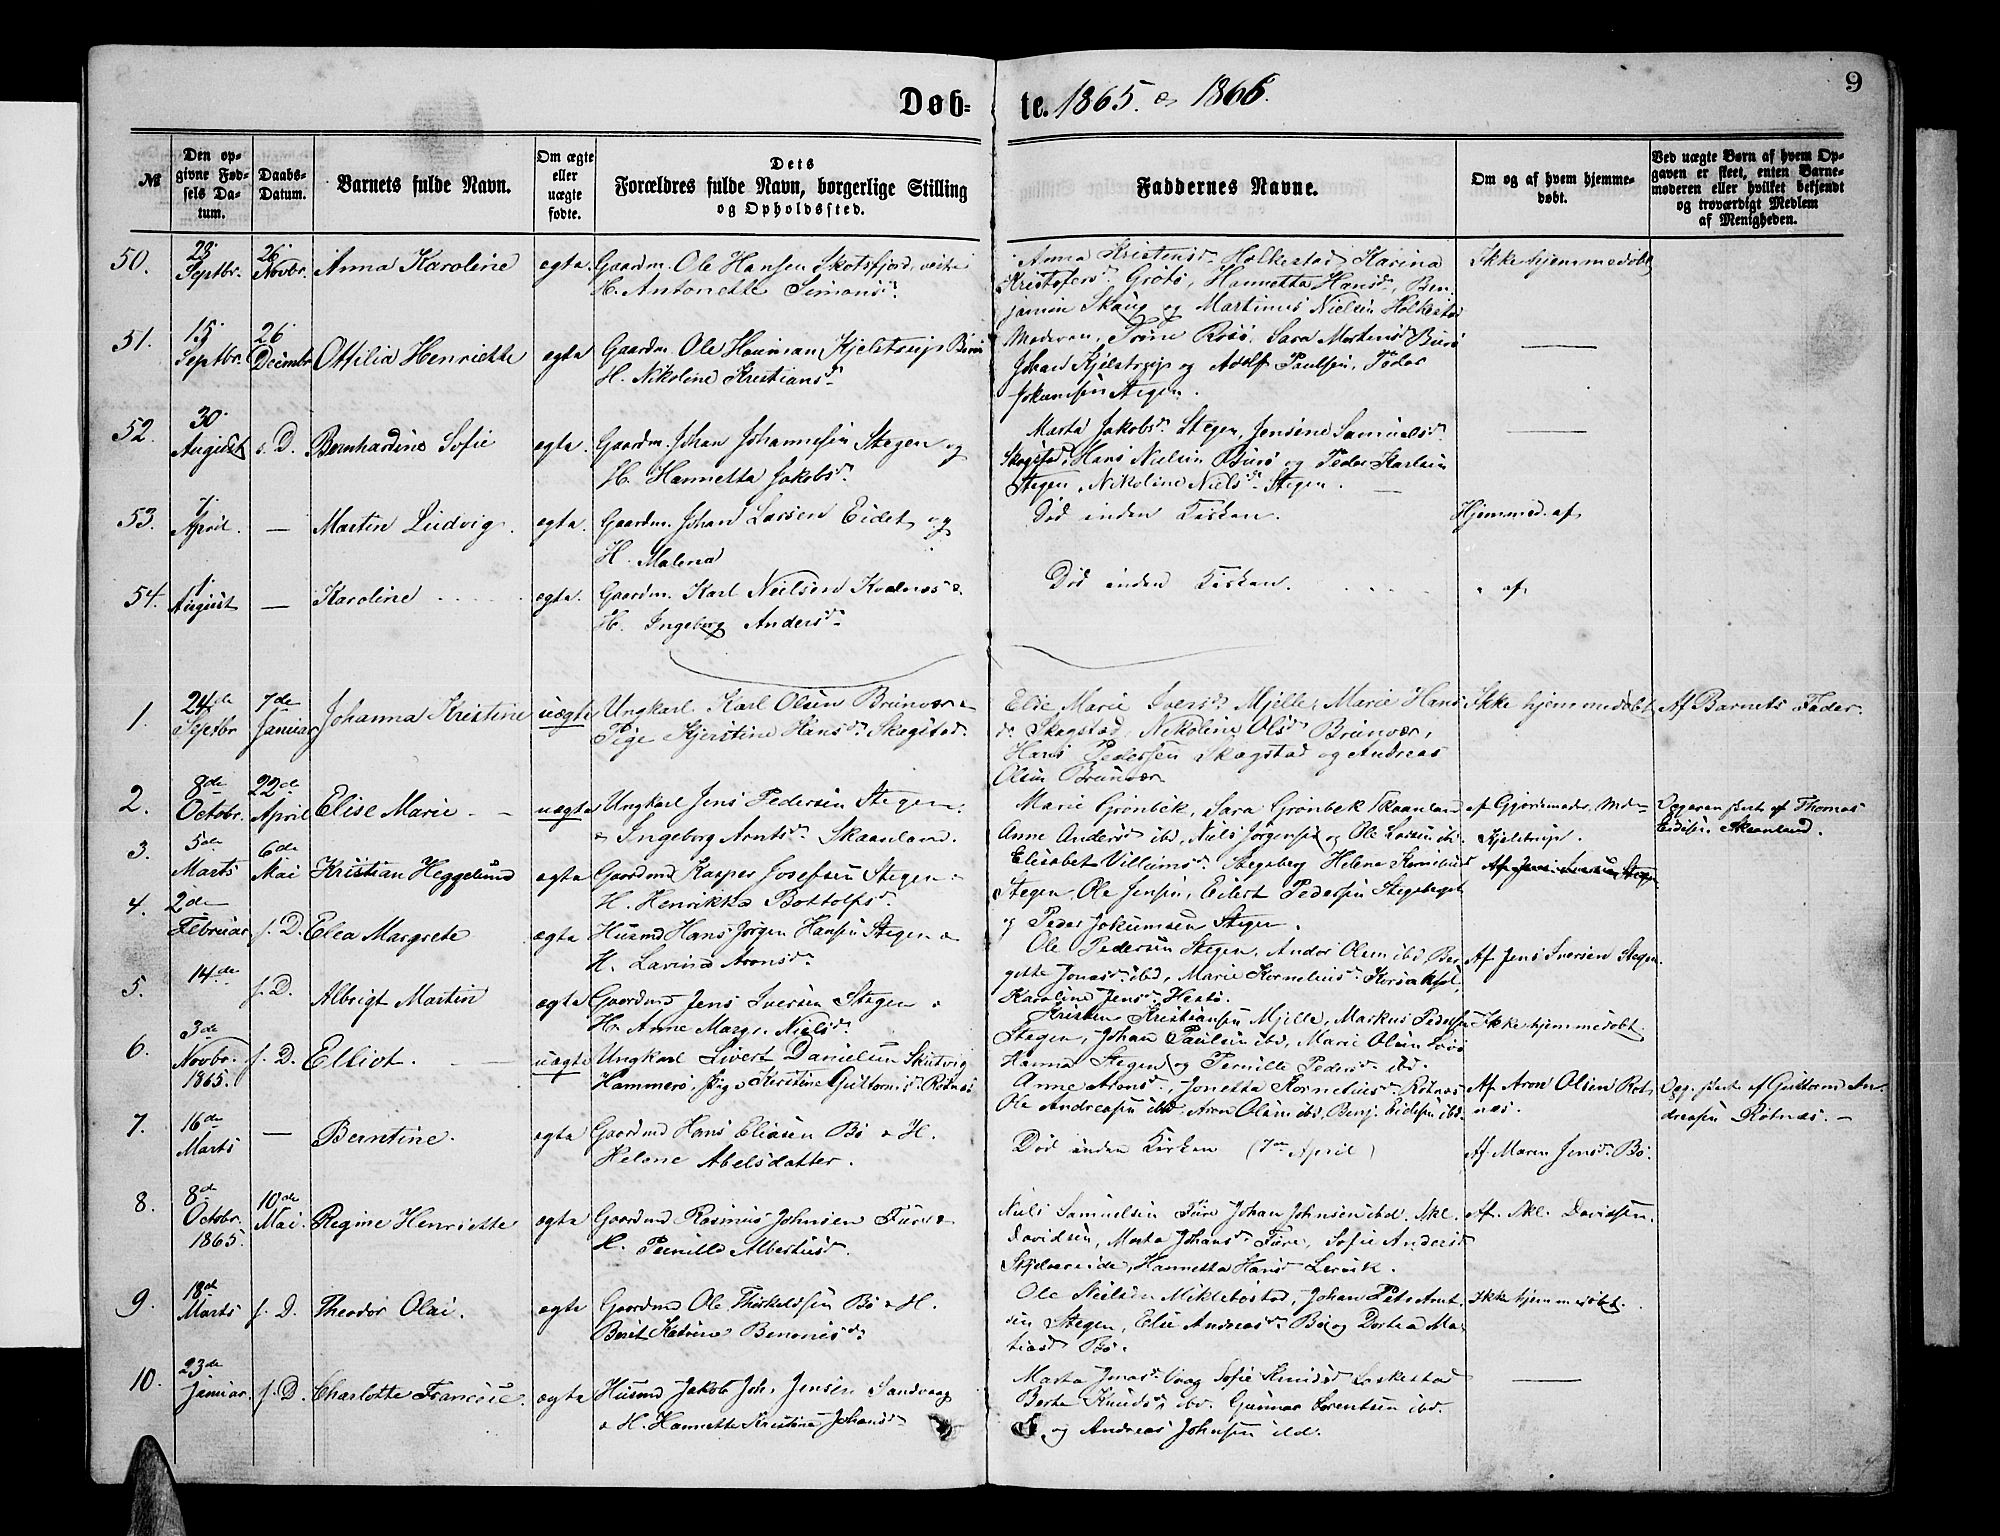 9
Døb- te. 1865. & 1866.
№
Den opgivne Fødsels Datum.
Daabs-Datum.
Barnets fulde Navn.
Om ægte eller uægte fødte.
Dets Forældres fulde Navn, borgerlige Stilling og Opholdssted.
Faddernes Navne.
Om og af hvem hjemmedøbt.
Ved uægte Børn af hvem Opgaven er skeet, enten Barnemoderen eller hvilket bekjendt og troværdigt Medlem af Menigheden.
50. 23 Septbr. 26 Novbr. Anna Karoline ægte. Gaardm. Ole Hansen Skotsfjord, vestre
H. Antonette Simonsd.
Anna Kristensd. Holkestad, Karina
Kristofersd. Grøtø, Hannetta Hansd., Ben-
jamin Skaug og Martinus Nielsen Holkestad
Ikke hjemmedøbt
51. 15 Septbr. 26 Decembr. Ottilia Henriette ægte Gaardm. Ole Hauman Kjelstrup
H. Nikoline Kristiansd.
Moderen, Sara Mortensd. Burø
Johan Kjelstrup og Adolf Paulsen, Peder
Jokumsen Stegen.
—
52. 30 August s. D. Bernhardine Sofie ægte. Gaardm. Johan Johannesen Stegen og
H. Hannetta Jakobsd.
Marta Jakobsd. Stegen, Jensine Samuelsd.
Skagstad, Hans Nielsen Burø og Peder Karlsen
Stegen, Nikoline Nielsd. Stegen.
—
53. 7 April. — Martin Ludvig. ægte Gaardm. Johan Larsen Eidet og
H. Malena
Død inden Kirken.
Hjemmed. af
54. 1 August — Karoline ægte. Gaardm. Karl Nielsen Kvalnæs &
H. Ingeborg Andersd.
Død inden Kirken.
" af
1. 24de Septbr 7de Januar Johanna Kristine uægte Ungkarl Karl Olsen Brunvær &
Pige Kjerstine Hansd. Skagstad.
Elie Marie Iversd. Mjelle, Marie Hans
d. Skagstad, Nikoline Olsd. Brunvær,
Hans Pedersen Skagstad og Andreas
Olsen Brunvær
Ikke hjemmedøbt
Af Barnets Fader.
2. 8de Octobr. 22de April Elise Marie. uægte Ungkarl Jens Pedersen Stegen
& Ingeborg Arntsd. Skaanland.
Marie Grønbek, Sara Grønbek Skaanland
Anne Andersd. ibd, Niels Jørgensen og Ole Larsen ibd.
af Gjordemoder
Kjelstrup.
Opgaven skeet af Thomas
Skaanland.
3. 5de Marts 6de Mai Kristian Heggelund ægte Gaardmd Kasper Josefsen Stegen &
H. Henrikka Bottolfsd.
Elisabet Villumsd. Stegsberg Helena Korneliusd
Stegen, Ole Jensen, Eilert Pedersen Stegsberget
og Peder Jokumsen Stegen.
Af Jens Iversen Stegen
4. 2den Februar s. D. Elea Margrete ægte Husmd Hans Jørgen Hansen Stegen &
H. Lavina Aronsd.
Ole Pedersen Stegen, Andor Olsen ibd, Ber-
gette Jonasd. ibd, Marie Kornelius
Karoline Jensd. Hestø.
Af Jens Iversen Stegen.
5. 14de s. D. Albrigt Martin ægte Gaardmd Jens Iversen Stegen &
H. Anne Margr. Nielsd.
Kristen Kristiansen Mjelle, Markus Pedersen
Stegen, Johan Paulsen ibd, Marie Olsen
Hanna Stegen og Pernille Pedersd. ibd.
Ikke hjemmedøbt.
6. 3de Novbr. 1865. s. D. Elliot. uægte Ungkarl Sivert Danielsen Skutvig
Hammerø, Pige Kirstine Guttormsd. Rotnæs
Anne Aronsd., Jonetta Korneliusd. Rotnæs
Ole Andreasen ibd, Aron Olsen ibd, Benj. Eidesen ibd.
Af Aron Olsen Rot-
næs.
Opg. skeet af Guttorm An-
dreasen Rotnæs. —
7. 16de Marts — Berntine. ægte Gaardmd Hans Eliasen Bø & H.
Helene Abelsdatter.
Død inden Kirken (7de April)
Af Maren Jensd. Bø.
8. 8de Octobr. 1865. 10de Mai Regine Henriette ægte Gaardmd Rasmus Johnsen Fure &
H. Pernille Albertusd.
Niels Samuelsen Fure Johan Johnsen ibd. Mkl.
Davidsen, Marta Johansd. Fure, Sofie Andersd
Skjelvareide, Hannetta Hansd. Lervik.
Af. Mkl. Davidsen.
9. 18de Marts s. D. Theodor Olai. ægte Gaardmd Ole Thirkeldsen Bø & H.
Berit Katrine Benonisd.
Ole Nielsen Miklebostad, Johan Pet. Arnt-
sen Stegen, Elie Andreasd. Bø og Dorthea Ma-
tiasd Bø.
Ikke hjemmedøbt.
10. 23de Januar. s. D. Charlotte Francise. ægte Husmd Jakob Joh. Jensen Sandvaag
& H. Hannette Kristine Johansd.
Marta Jonasd. Vaag Sofie Knudsd. Laskestad
Berta Knudsd. ibd. Gunnar Lorentsen ibd.
og Andreas Johnsen ibd.
—